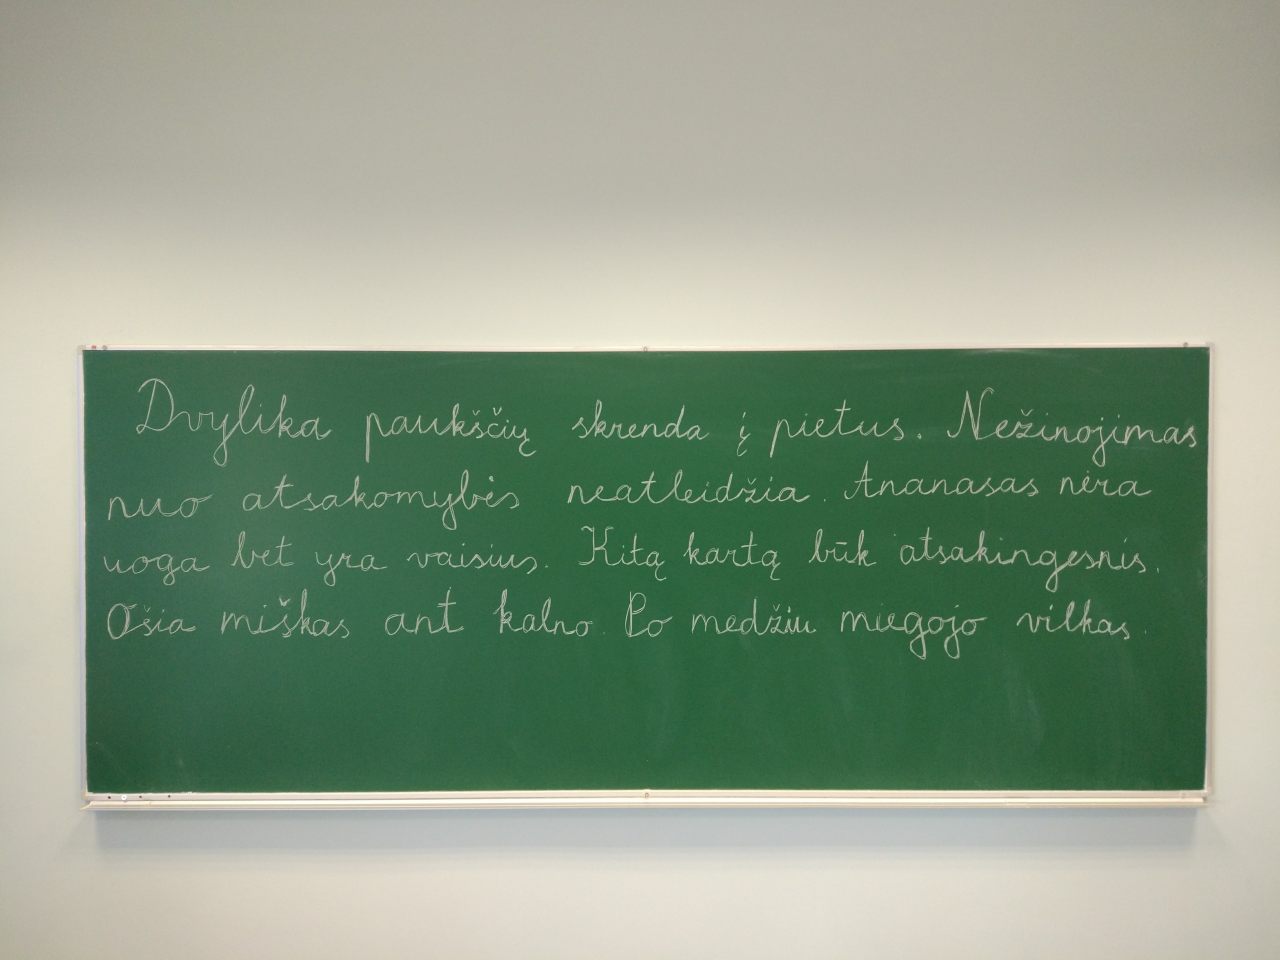 Dvylika paukščių skrenda į pietus. Nežinojimas
nuo atsakomybės neatleidžia. Ananasas nėra
uoga bet yra vaisius. Kitą kartą būk atsakingesnis.
Ošia miškas ant kalno. Po medžiu miegojo vilkas.